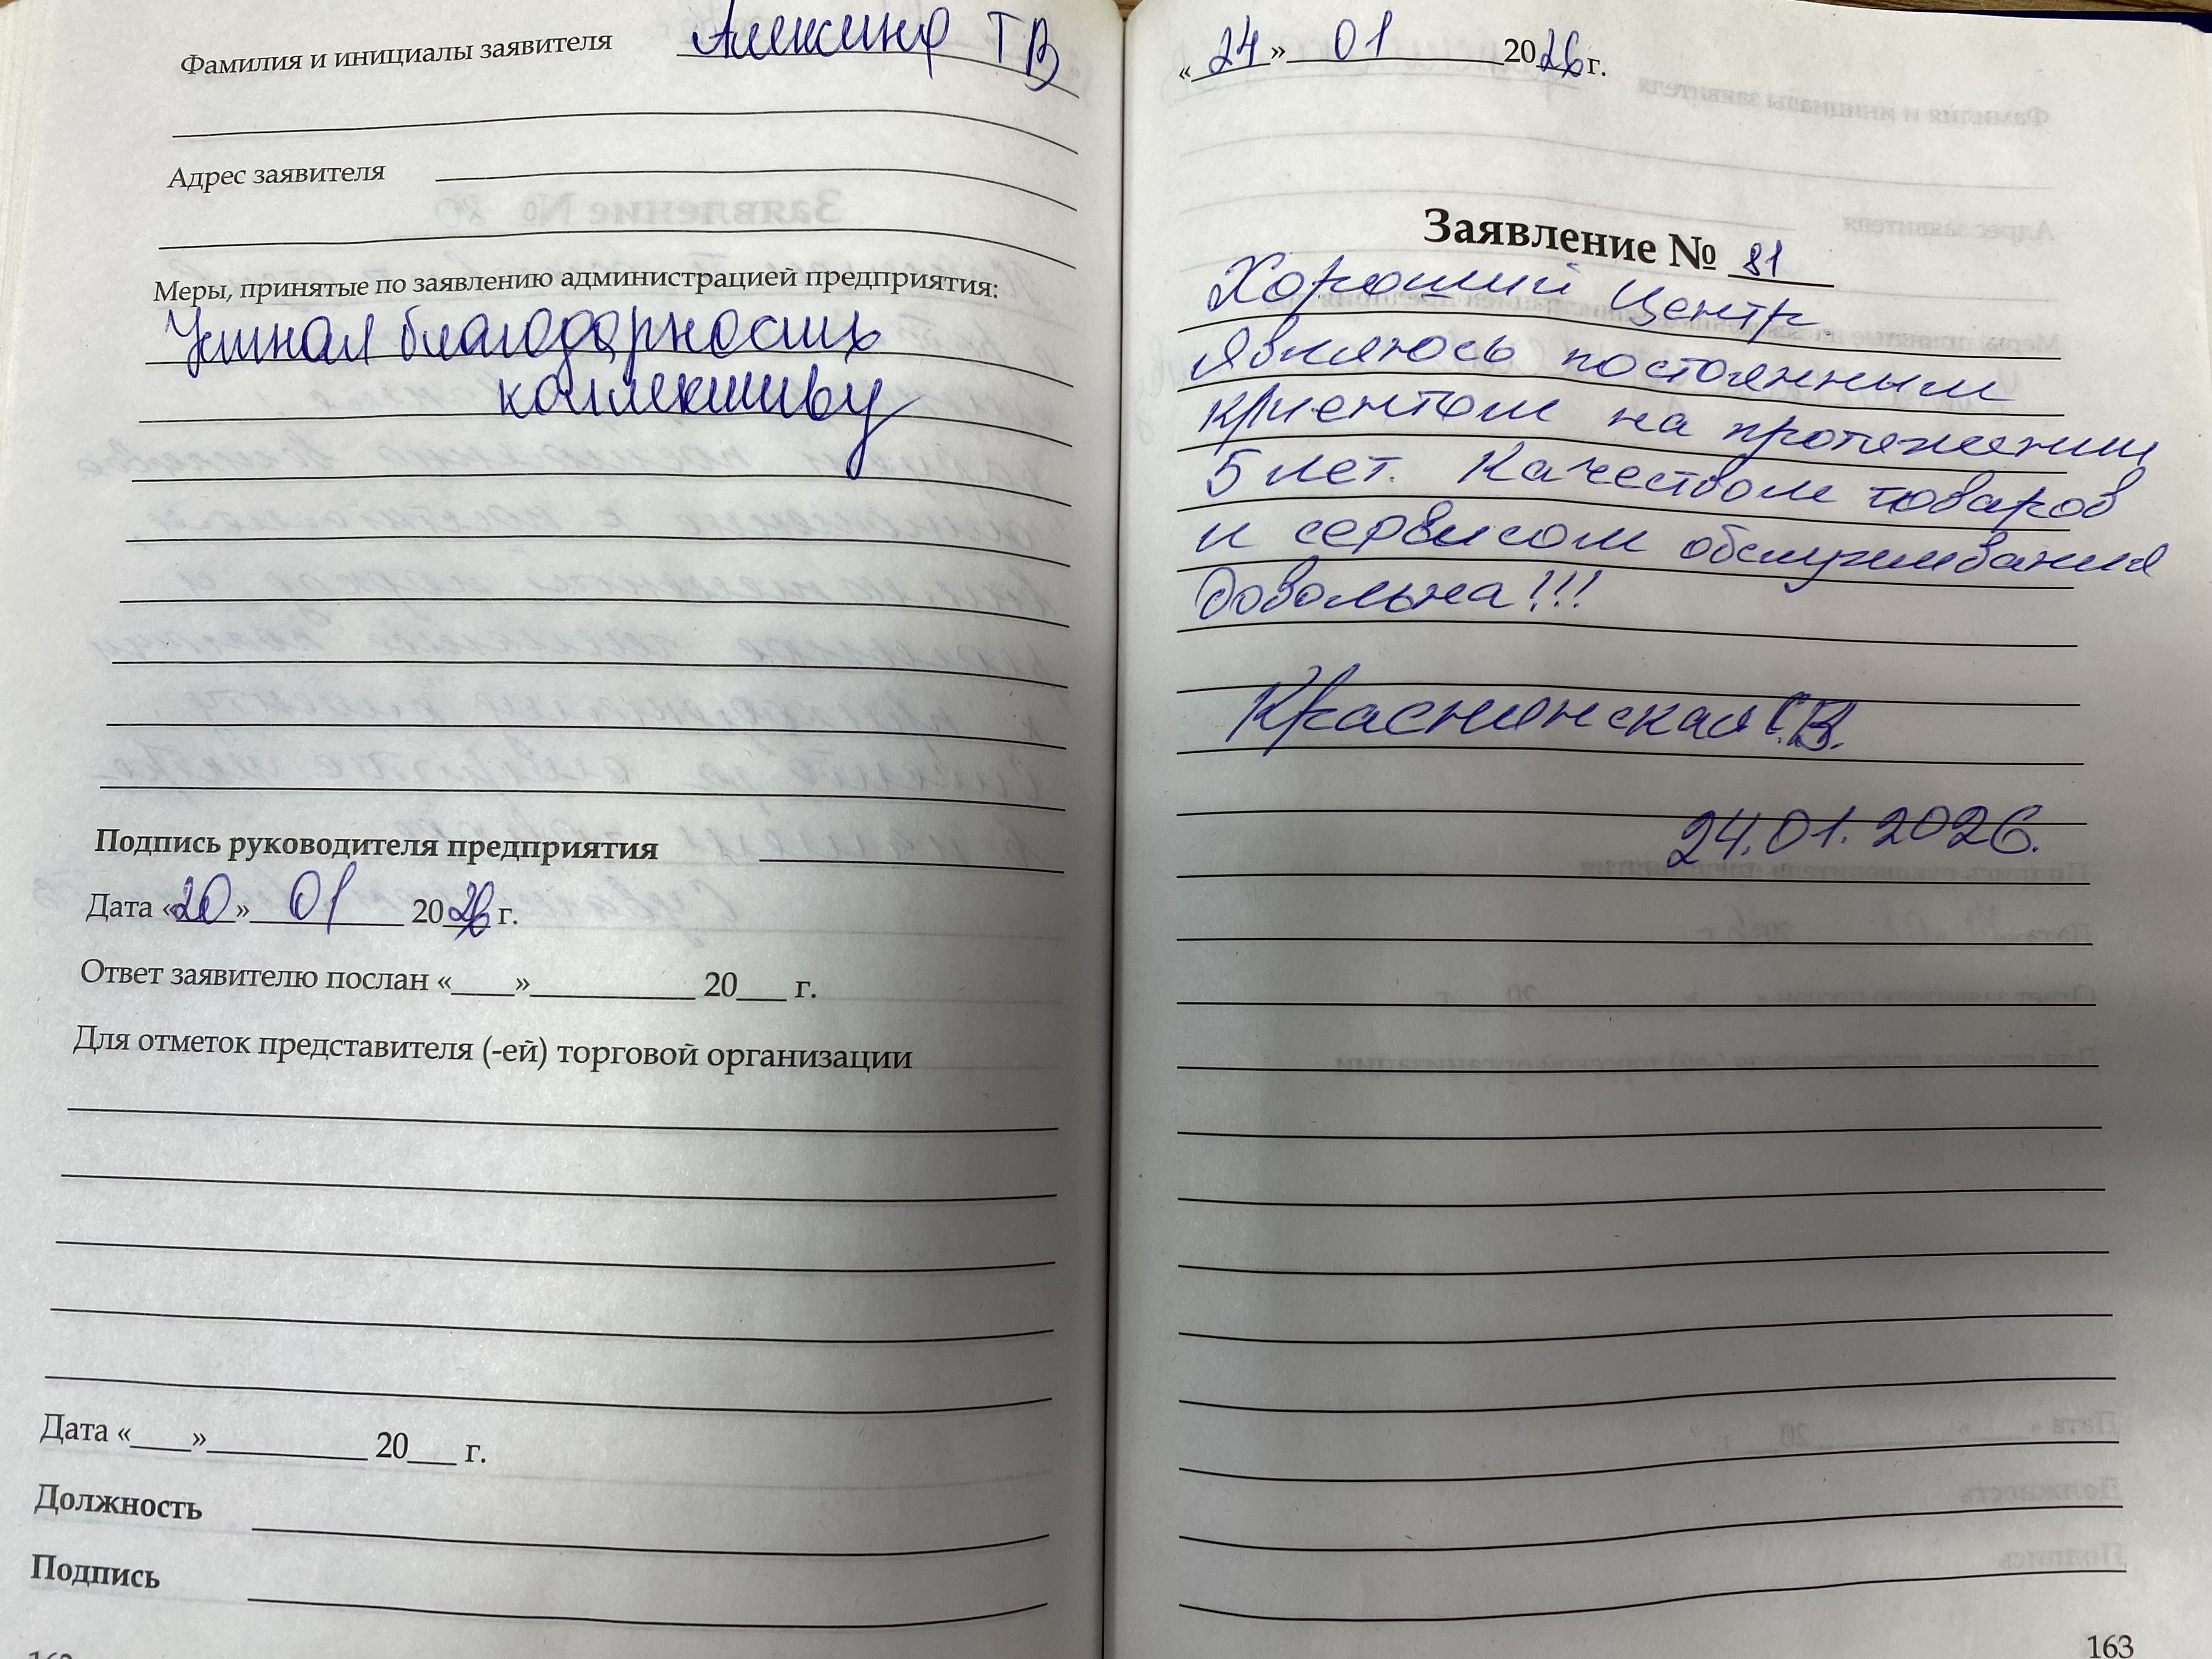 Фамилия и инициалы заявителя Алексина Т В
Адрес заявителя
Меры, принятые по заявлению администрацией предприятия:
Устная благодарность
коллективу
Подпись руководителя предприятия
Дата «20» 01 2026 г.
Ответ заявителю послан «___»_________ 20___ г.
Для отметок представителя (-ей) торговой организации
Дата «___»_________ 20___ г.
Должность
Подпись
«24» 01 2026 г.
Заявление № 81
Хороший центр.
Являюсь постоянным
клиентом на протяжении
5 лет. Качеством товаров
и сервисом обслуживания
довольна!!!
Краснинская С.В.
24.01.2026.
163